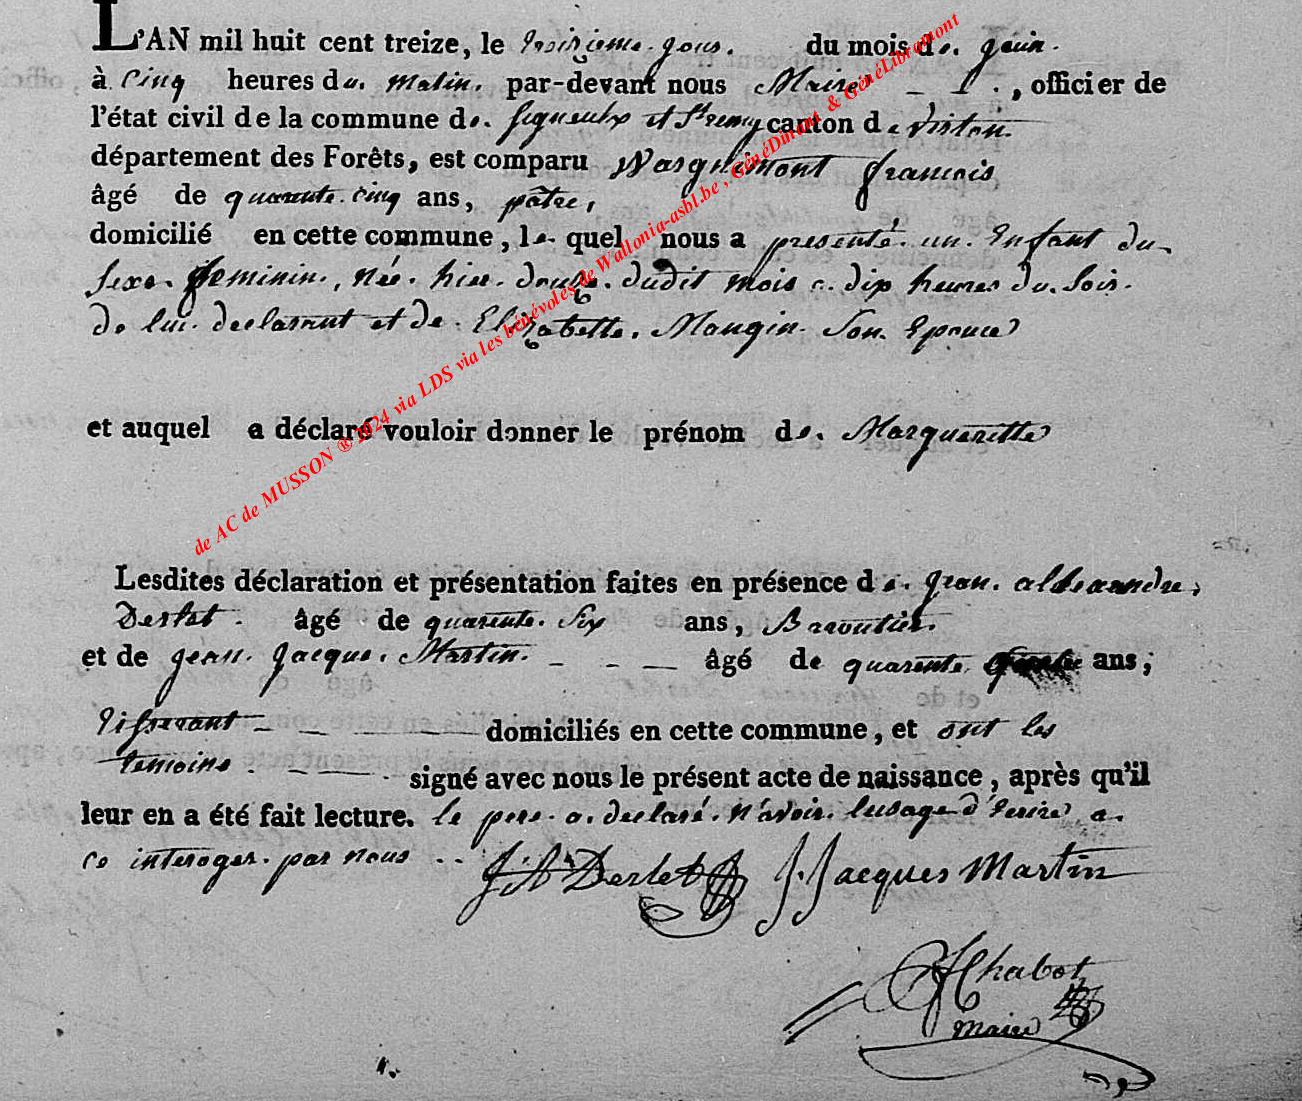 L'AN mil huit cent treize, le treizieme jour. du mois de. juin.
à Cinq heures du. matin. par-devant nous Maire , officier de
l'état civil de la commune de. Signeulx et St remy canton de virton.
département des Forêts, est comparu Warguimont francois
âgé de quarente. cinq ans, pâtre,
domicilié en cette commune, le quel nous a presenté. un. Enfant du
sexe. feminin., née. hier. douze. dudit mois a. dix heures du. soir.
de lui. declarant et de. Elizabette. Mangin. son. Epouce
et auquel a déclaré vouloir donner le prénom de. Margueritte
Lesdites déclaration et présentation faites en présence de. jean. alexandre,
Derlet. âgé de quarente. six ans,
et de jean. jacque. Martin. âgé de quarente ans;
tisserant domiciliés en cette commune, et ont les
temoins. signé avec nous le présent acte de naissance, après qu'il
leur en a été fait lecture. le pere. a. declaré. n'avoir. lusage d'Ecrire a.
ce interoger. par nous
J: A: Derlet J. Jacques Martin
Chabot
maire
de AC de MUSSON ® 2024 via LDS via les bénévoles de Wallonia-asbl.be , GénéDinant & GénéLibramont